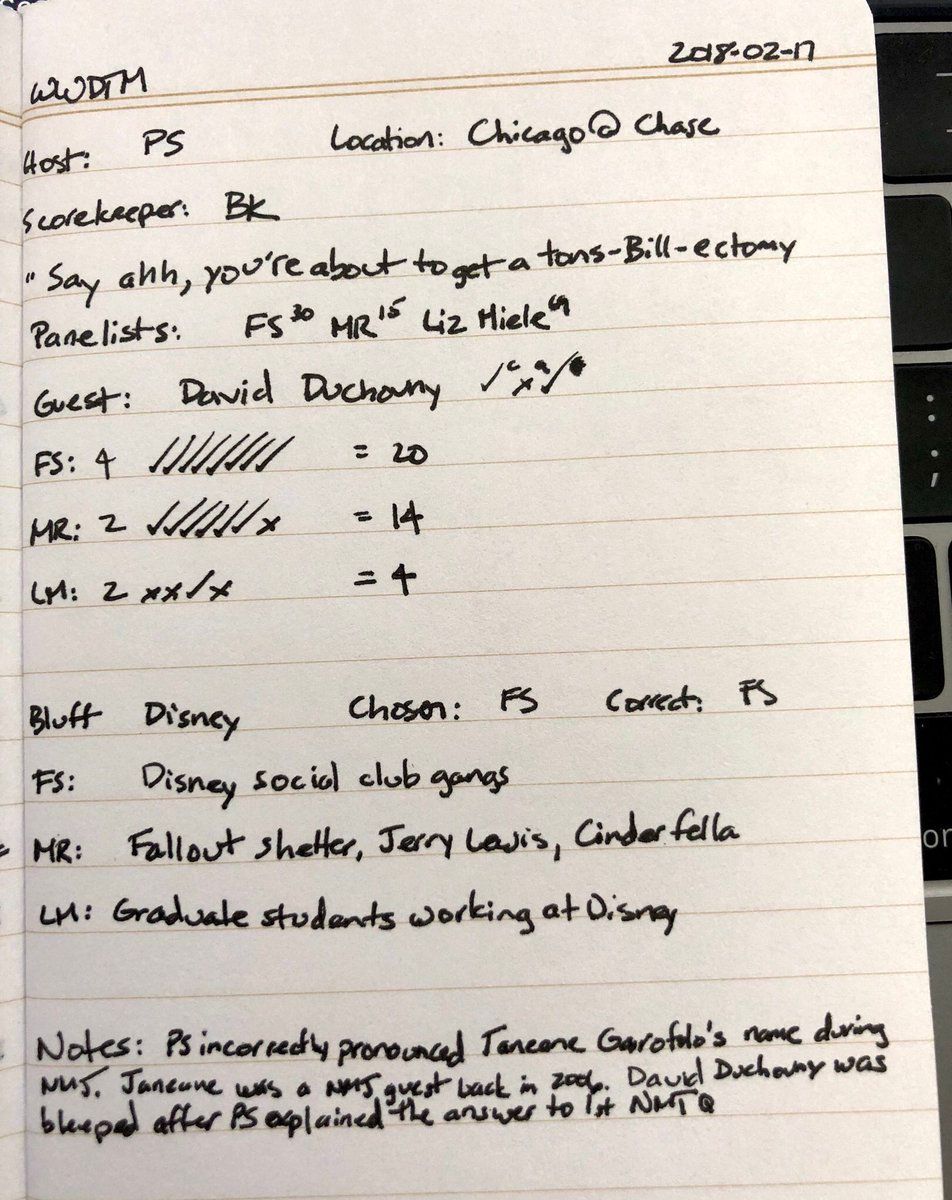 WWDTM 2018-02-17
Host: PS Location: Chicago @ Chase
Scorekeeper: BK
"Say ahh, you're about to get a tons-Bill-ectomy
Panelists: FS 30 MR 15 Liz Miele 69
Guest: David Duchovny ✓ c x a ✓
FS: 4 ✓✓✓✓✓✓✓✓ = 20
MR: 2 ✓✓✓✓✓✓x = 14
LM: 2 xx✓x = 4
Bluff Disney Chosen: FS Correct: FS
FS: Disney social club gangs
MR: Fallout shelter, Jerry Lewis, Cinderfella
LM: Graduate students working at Disney
Notes: PS incorrectly pronounced Janeane Garofolo's name during
NMJ. Janeane was a NMJ guest back in 2006. David Duchovny was
bleeped after PS explained the answer to 1st NMJ Q
or
:
;